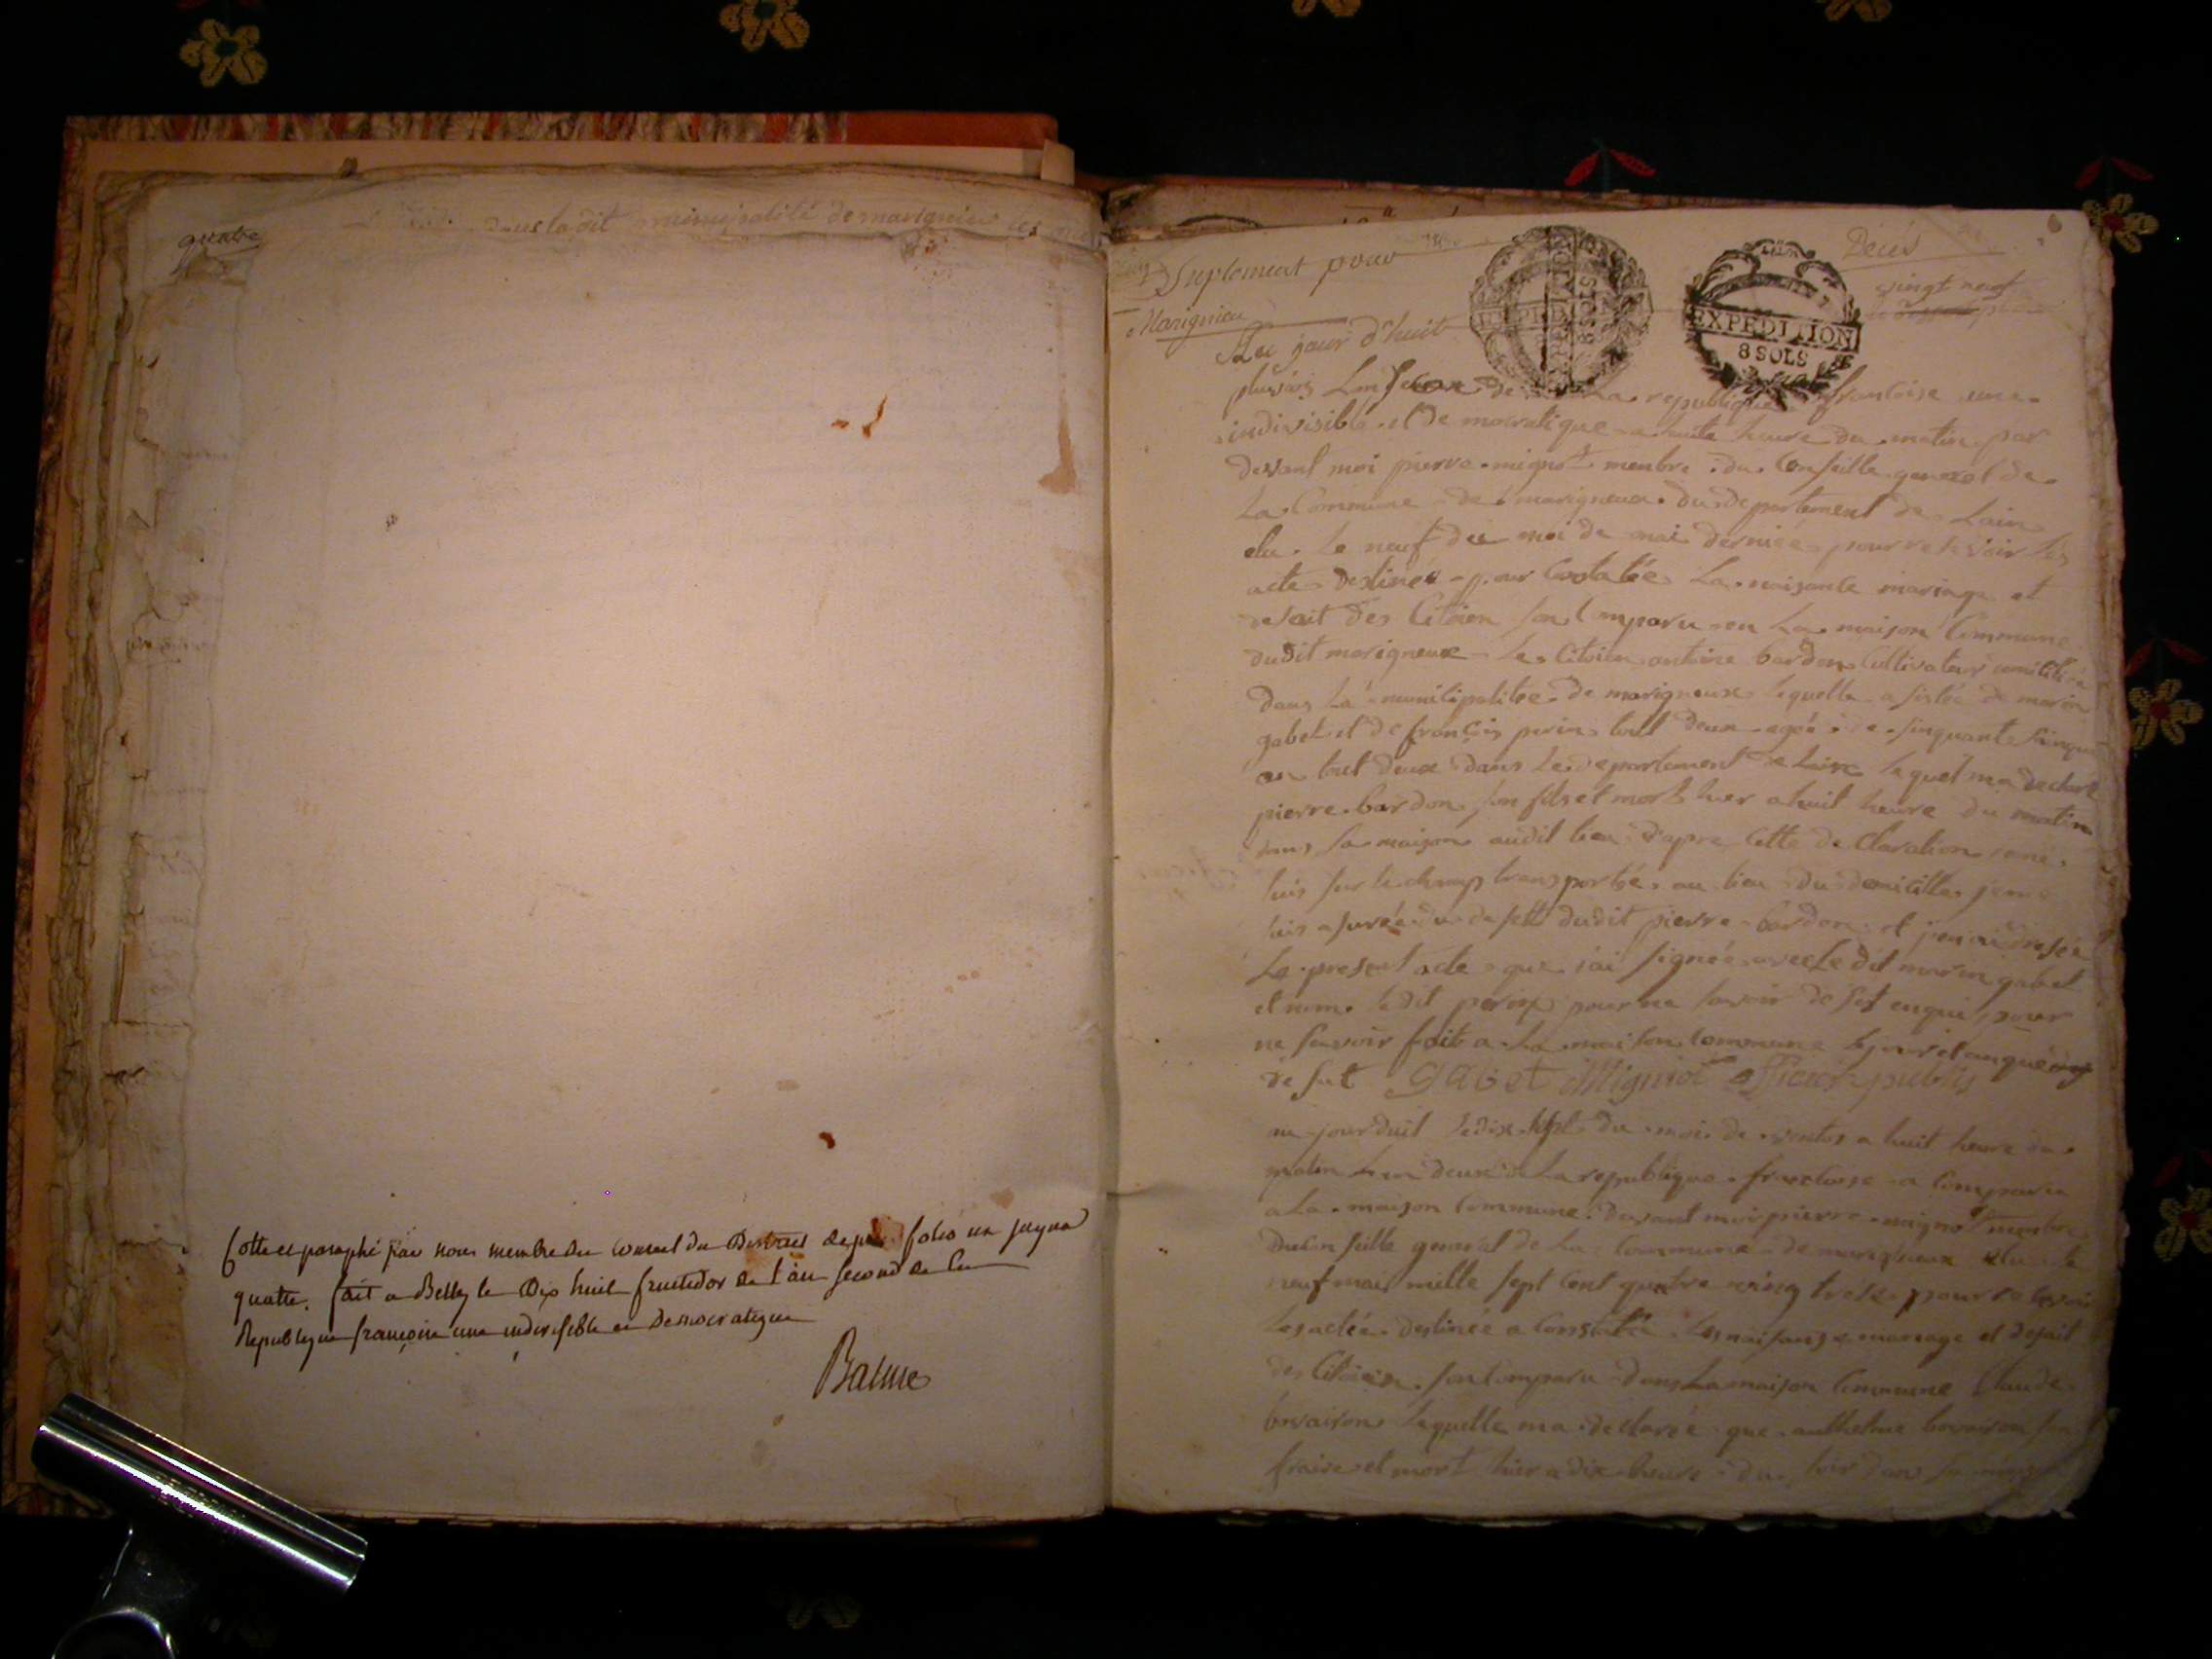 quatre
dans la dit municipalité de marignieu les
Cotté et paraphé par nous membre du conseil du District depuis folio un jusqua
quatre. fait a Belley le Dix huit fructidor de l'an second de la
Republique françoise une indivisible et Democratique
Balme
Suplement pour
Marignieu
Décés
EXPEDITION
8 SOLS
EXPEDITION
8 SOLS
vingt neuf
Au jour d'huit
pluviôs Lan second de La republique francoise une
indivisible et De mocratique a huite heure du matin par
devant moi pierre mignot menbre du Conseille general de
La Commune de marigneux du departement de Lain
elu le neuf du moi de mai dernié pour resevoir les
acte destinés pour Constatée La naisante mariage et
desait des Citoien son Comparu en La maison Commune
dudit marigneux le Citoien antoine bardon Cultivateur
dans La municipalitée de marigneux lequelle asistée de marin
gabet et de françois perin tout deux agée de sinquante sinque
an tout deux dans Le departement de Lain lequel ma declaré
pierre bardon son fils et mort hier a huit heure du matin
dans sa maison audit lieu dapre Cette de Claration je me
suis sur le champ transportée au lieu du domicille je me
suis asurée du desett dudit pierre bardon et jen ai dresée
Le present acte que jai signée avec le dit marin gabet
et nom ledit perin pour ne savoir de set enquis pour
ne savoir fait a La maison commune le jour et an que
de sut gabet Migniot officier publis
au jourduit le dix sept du moi de ventos a huit heure du
matin Lan deux de La republique francoise a Comparu
a La maison Commune devant moi pierre mignot menbre
du Conseille general de La Commune de marigneux elu le
neuf mai mille sept cent quatre ving treise pour resevoir
les actée destinée a Constatée les naisanse mariage et desait
des Citoien son Comparu dans La maison Commune Claude
bovaison lequelle ma declarée que anthelme bovaison son
fraire et mort hier a dix heure du soir dans sa maison